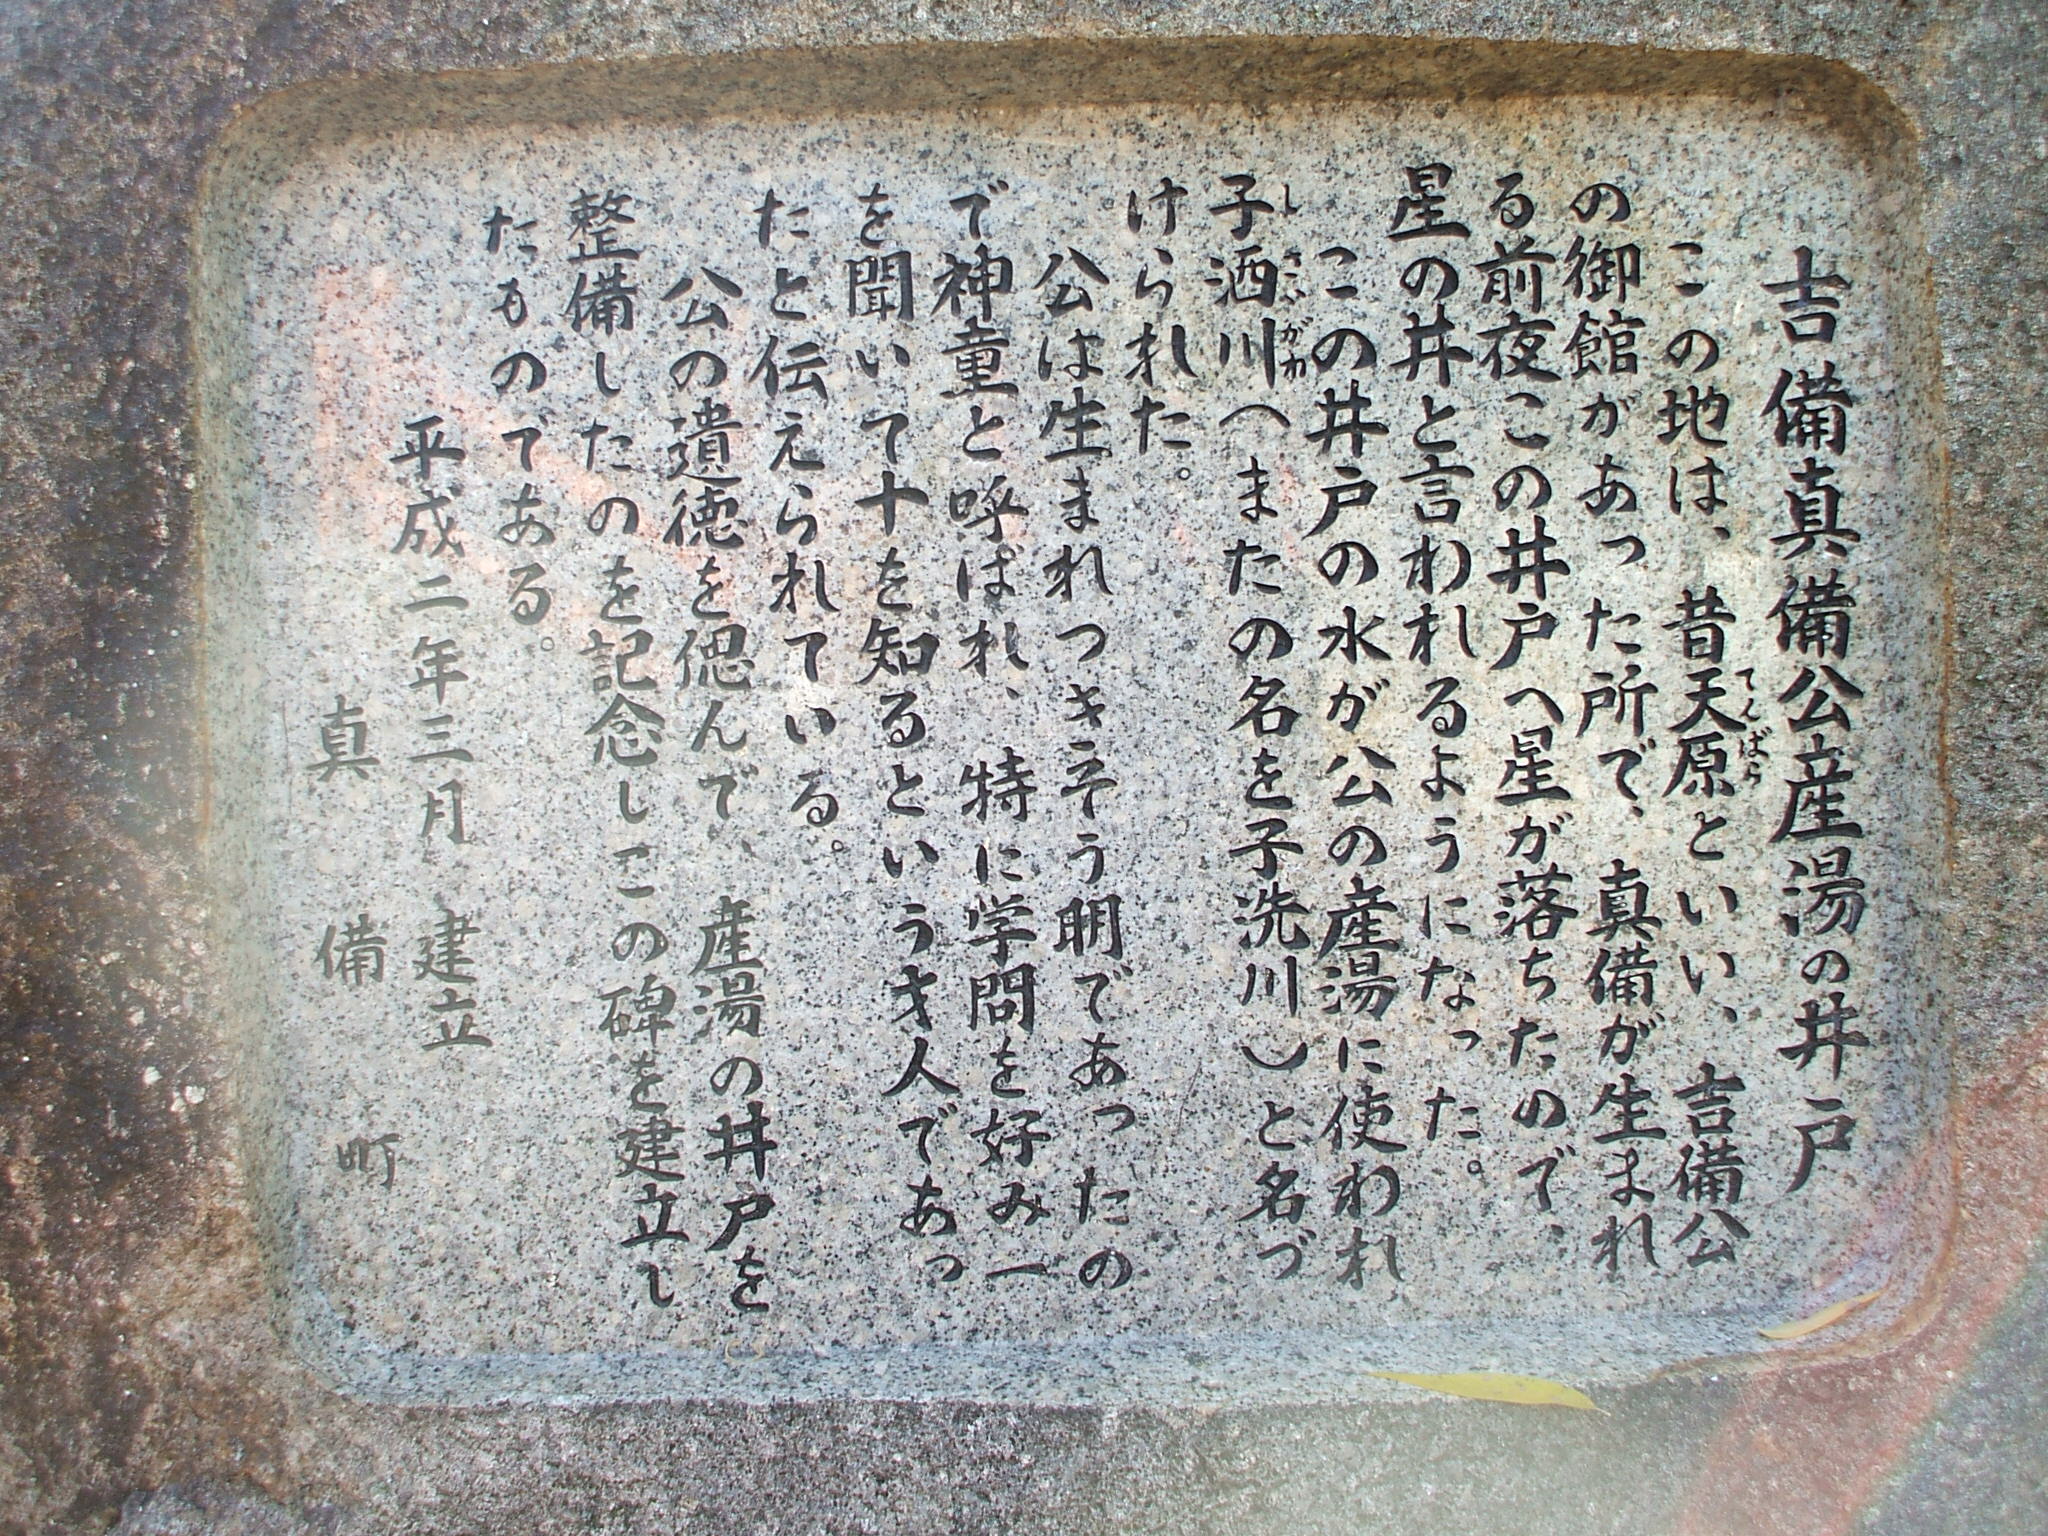 吉備真備公産湯の井戸
この地は、昔天原といい、吉備公
の御館があった所で、真備が生まれ
る前夜この井戸へ星が落ちたので、
星の井と言われるようになった。
この井戸の水が公の産湯に使われ
子洒川(またの名を子洗川)と名づ
けられた。
公は生まれつき聡明であったの
で神童と呼ばれ、特に学問を好み一
を聞いて十を知るという才人であっ
たと伝えられている。
公の遺徳を偲んで、産湯の井戸を
整備したのを記念しこの碑を建立し
たものである。
平成二年三月 建立
真備町